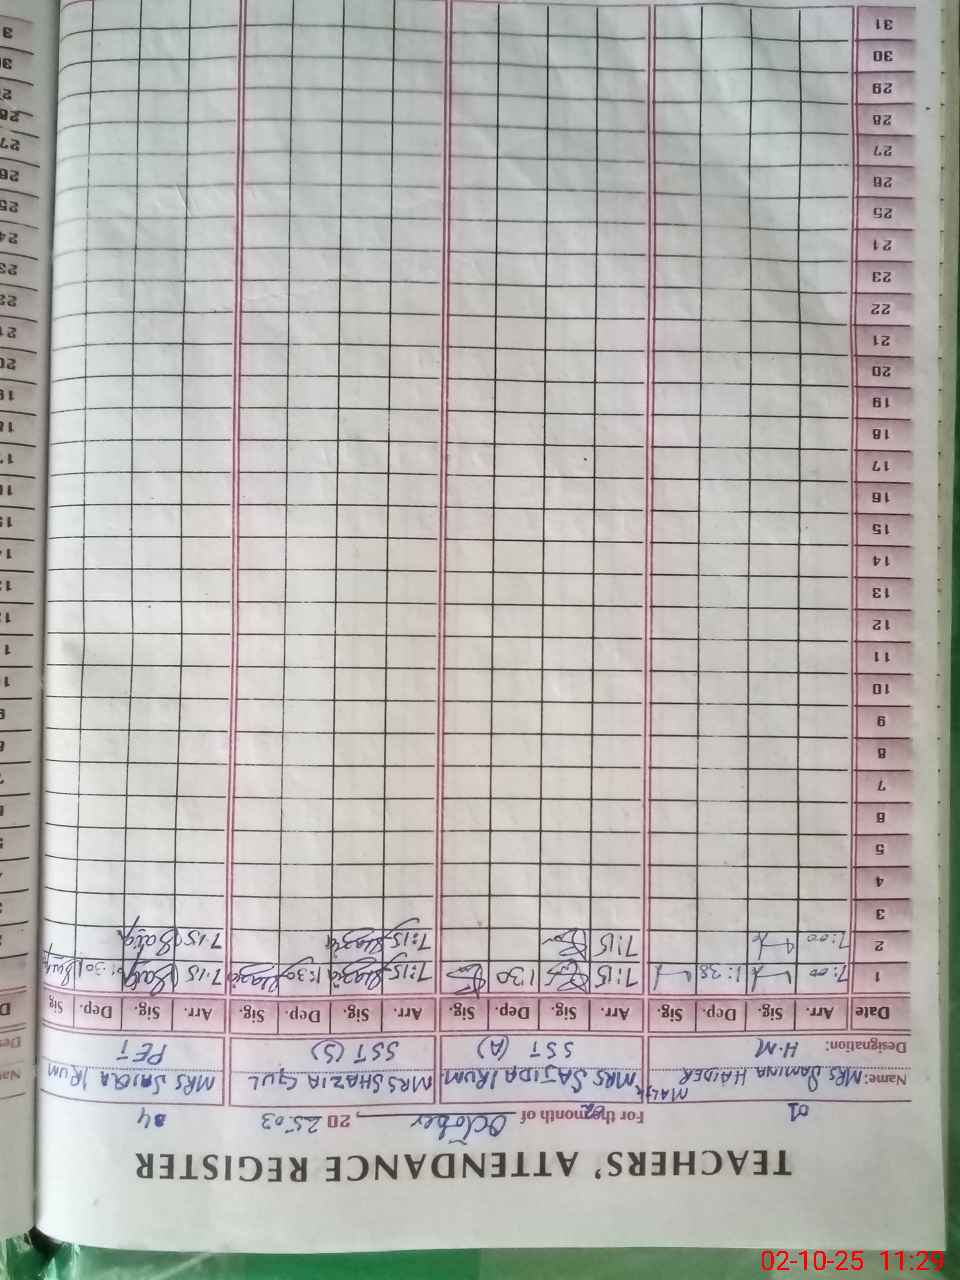 TEACHERS' ATTENDANCE REGISTER
01 For the month of 02 October 2025 03 04
Name: MRS SAMINA HAIDER MALIK MRS SAJIDA IRUM MRS SHAZIA GUL MRS SAIQLA IRUM
Designation: H.M SST (A) SST (S) PET
Date Arr. Sig. Dep. Sig. Arr. Sig. Dep. Sig. Arr. Sig. Dep. Sig. Arr. Sig. Dep. Sig.
1 7:00 1:38 7:15 1:30 7:15 Shazia 1:30 Shazia 7:15 1:30
2 7:00 7:15 7:15 Shazia 7:15
3
4
5
6
7
8
9
10
11
12
13
14
15
16
17
18
19
20
21
22
23
24
25
26
27
28
29
30
31
02-10-25 11:29